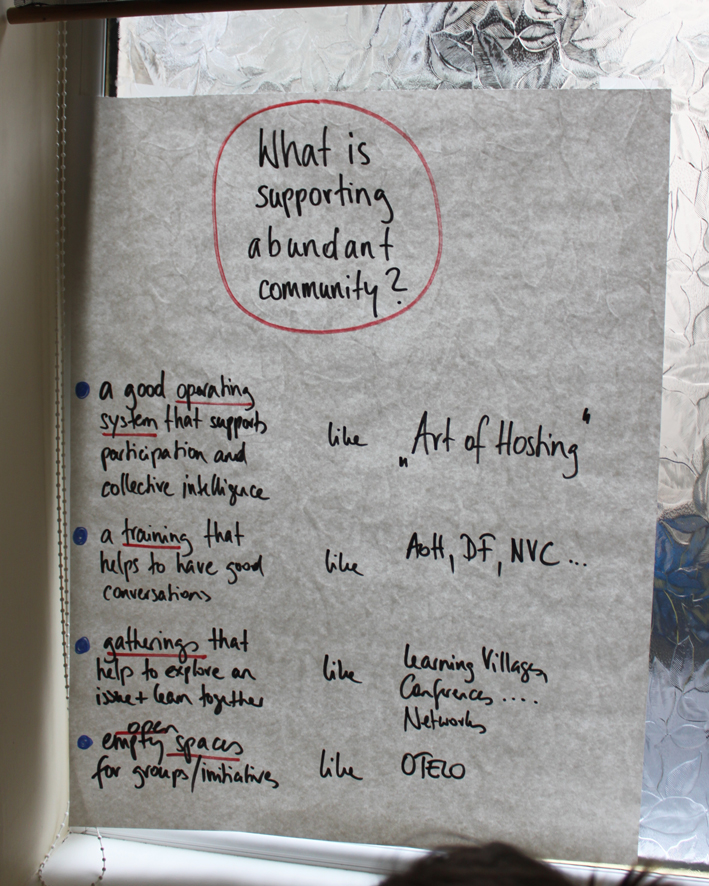 What is
supporting
abundant
community?
• a good operating
system that supports
participation and
collective intelligence
like
„Art of Hosting“
• a training that
helps to have good
conversations
like
AoH, DF, NVC ...
• gatherings that
help to explore an
issue + learn together
like
Learning Villages,
Conferences ....
Networks
open
• empty spaces
for groups/initiatives
like
OTELO